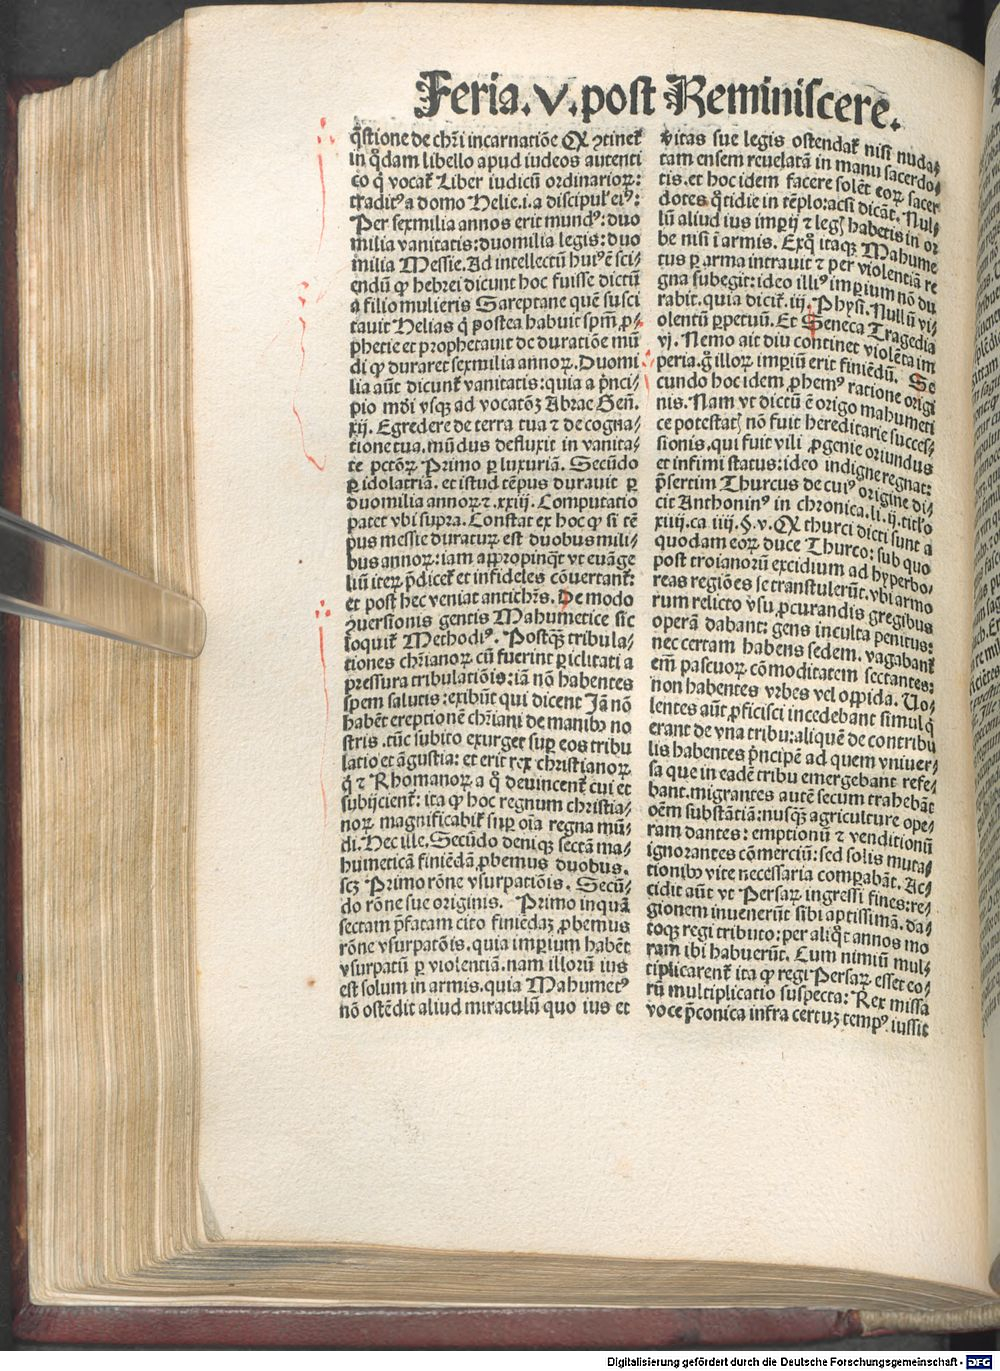 Feria. V. post Reminiscere.
q̄stione de chr̄i incarnatiōe Qꝫ ꝯtinet᷑
in q̇dam libello apud iudeos autenti
co q̇ vocat᷑ Liber iudicū ordinarioꝝ:
traditꝰ a domo Helie.i.a discipul' eiꝰ:
Per sexmilia annos erit mundꝰ: duo
milia vanitatis: duomilia legis: duo
milia Messie. Ad intellectū huiꝰ ē sci-
endū ꝙ hebrei dicunt hoc fuisse dictū
a filio mulieris Sareptane quē susci
tauit Helias q̇ postea habuit spm̄ ꝓ-
phetie et prophetauit de duratiōe mū
di ꝙ duraret sexmilia annoꝝ. Duomi
lia aūt dicunt᷑ vanitatis: quia a p̄nci-
pio mūdi vsqꝫ ad vocatōꝫ Abrae Geñ.
xij. Egredere de terra tua ⁊ de cogna/
tione tua. mūdus defluxit in vanita/
te pctōꝝ Primo ꝑ luxuriā. Secūdo
ꝑ idolatriā. et istud tēpus durauit ꝑ
duomilia annoꝝ ⁊ .xxiij. Computatio
patet vbi supra. Constat ex hoc ꝙ si tē
pus messie duraturꝝ est duobus mili/
bus annoꝝ: iam appropinq̄t vt euāge
liū iteꝝ p̄dicet᷑ et infideles cōuertant᷑:
et post hec veniat antichr̄s. De modo
ꝯuersionis gentis Mahumetice sic
loquit᷑ Methodiꝰ. Postqꝫ tribula/
tiones chr̄ianoꝝ cū fuerint ꝑiclitati a
pressura tribulatiōis: iā nō habentes
spem salutis: exibūt qui dicent Jā nō
habēt ereptionē chr̄iani de manibꝫ no
stris. tūc subito exurget suꝑ eos tribu
latio et āgustia: et erit rex christianoꝝ
q̇ ⁊ Rhomanoꝝ a q̇ deuincent᷑ cui et
subijcient᷑: ita ꝙ hoc regnum christia/
noꝝ magnificabit᷑ suꝑ oīa regna mū/
di. Hec ille. Secūdo deniqꝫ sectā ma/
humeticā finiēdā ꝓbemus duobus.
scꝫ Primo rōne vsurpatiōis. Secū/
do rōne sue originis. Primo inquā
sectam p̄fatam cito finiēdaꝫ ꝓbemus
rōne vsurpatōis. quia imꝑium habēt
vsurpatū ꝑ violentiā. nam illorū ius
est solum in armis. quia Mahumetꝰ
nō ostēdit aliud miraculū quo ius et
vitas sue legis ostendat᷑ nisi nuda/
tam ensem reuelatā in manu sacerdo/
tis. et hoc idem facere solēt eoꝝ sacer
dotes q̇tidie in tēplo: acsi dicāt. Nul/
lū aliud ius imꝑij ⁊ legꝭ habetis in or
be nisi ī armis. Exq̇ itaqꝫ Mahume
tus ꝑ arma intrauit ⁊ per violentiā re
gna subegit: ideo illiꝰ imꝑium nō du
rabit. quia dicit᷑. iij. Physi. Nullū vi/
olentū ꝑpetuū. Et Seneca Tragedia
vj. Nemo ait diu continet violēta im
peria. g̊ illoꝝ impiū erit finiēdū. Se
cundo hoc idem ꝓbemꝰ ratione origi
nis. Nam vt dictū ē origo mahumeti
ce potestatꝭ nō fuit hereditarie succes/
sionis. qui fuit vili ꝓgenie oriundus
et infimi status: ideo indigne regnat:
p̄sertim Thurcus de cuiꝰ origine di/
cit Anthoninꝰ in chronica. li. ij. titl'o
xiiij. ca iiij. §. v. Qꝫ thurci dicti sunt a
quodam eoꝝ duce Thurco: sub quo
post troianorū excidium ad hyperbo/
reas regiōes se transtulerūt. vbi armo
rum relicto vsu ꝓcurandis gregibus
operā dabant: gens inculta penitus:
nec certam habens sedem. vagabant᷑
em̄ pascuoꝝ cōmoditatem sectantes:
non habentes vrbes vel oppida. Uo/
lentes aūt ꝓficisci incedebant simul q̇
erant de vna tribu: aliquē de contribu
lis habentes p̄ncipē ad quem vniuer/
sa que in eadē tribu emergebant refe/
bant. migrantes autē secum trahebāt
oēm substātiā: nusqꝫ agriculture ope/
ram dantes: emptionū ⁊ venditionū
ignorantes cōmerciū: sed solis muta/
tionibꝫ vite necessaria comꝑabāt. Ac/
cidit aūt vt Persaꝝ ingressi fines: re/
gionem inuenerūt sibi aptissimā. da/
toqꝫ regi tributo: per aliq̇t annos mo
ram ibi habuerūt. Cum nimiū mul/
tiplicarent᷑ ita ꝙ regi Persaꝝ esset eo/
rū multiplicatio suspecta: Rex missa
voce p̄conica infra certuꝫ tempꝰ iussit
Digitalisierung gefördert durch die Deutsche Forschungsgemeinschaft - DFG